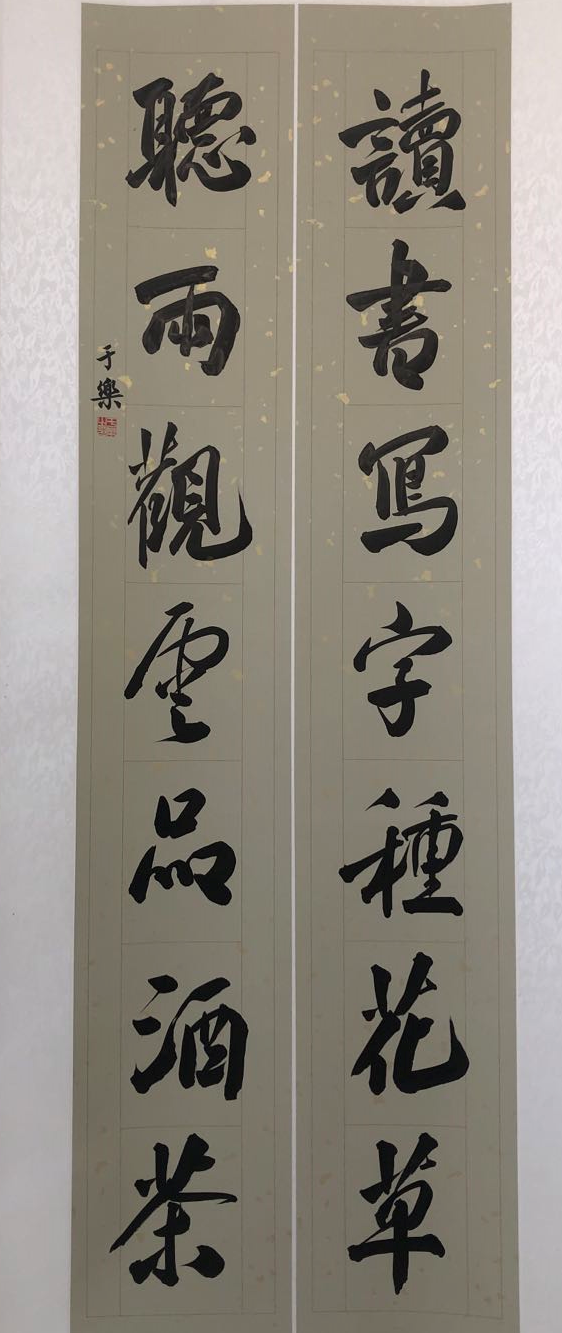 讀書寫字種花草
聽雨觀雲品酒茶
于樂